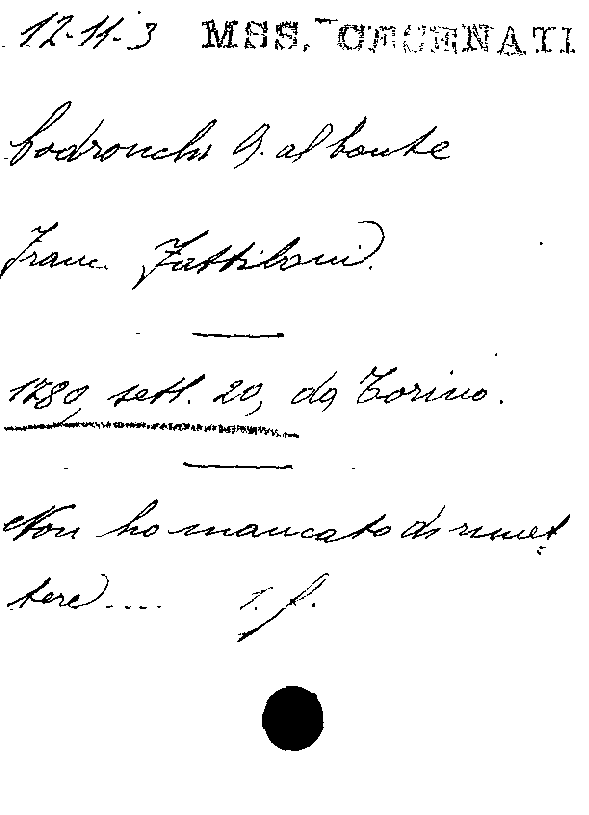 12-11-3 MSS. CESENATI
Codronchi G. al conte
Franc. Fattiboni.
1780, sett. 20, da Torino.
Non ho mancato di rimet
tere.... 1. f.